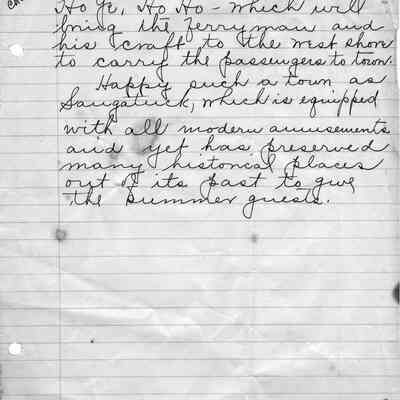 Ho Ye, Ho Ho - which will
bring the Ferryman and
his craft, to the west shore
to carry the passengers to town.
Happy such a town as
Saugatuck, which is equipped
with all modern amusements
and yet has preserved
many historical places
out of its past to give
the summer guests.